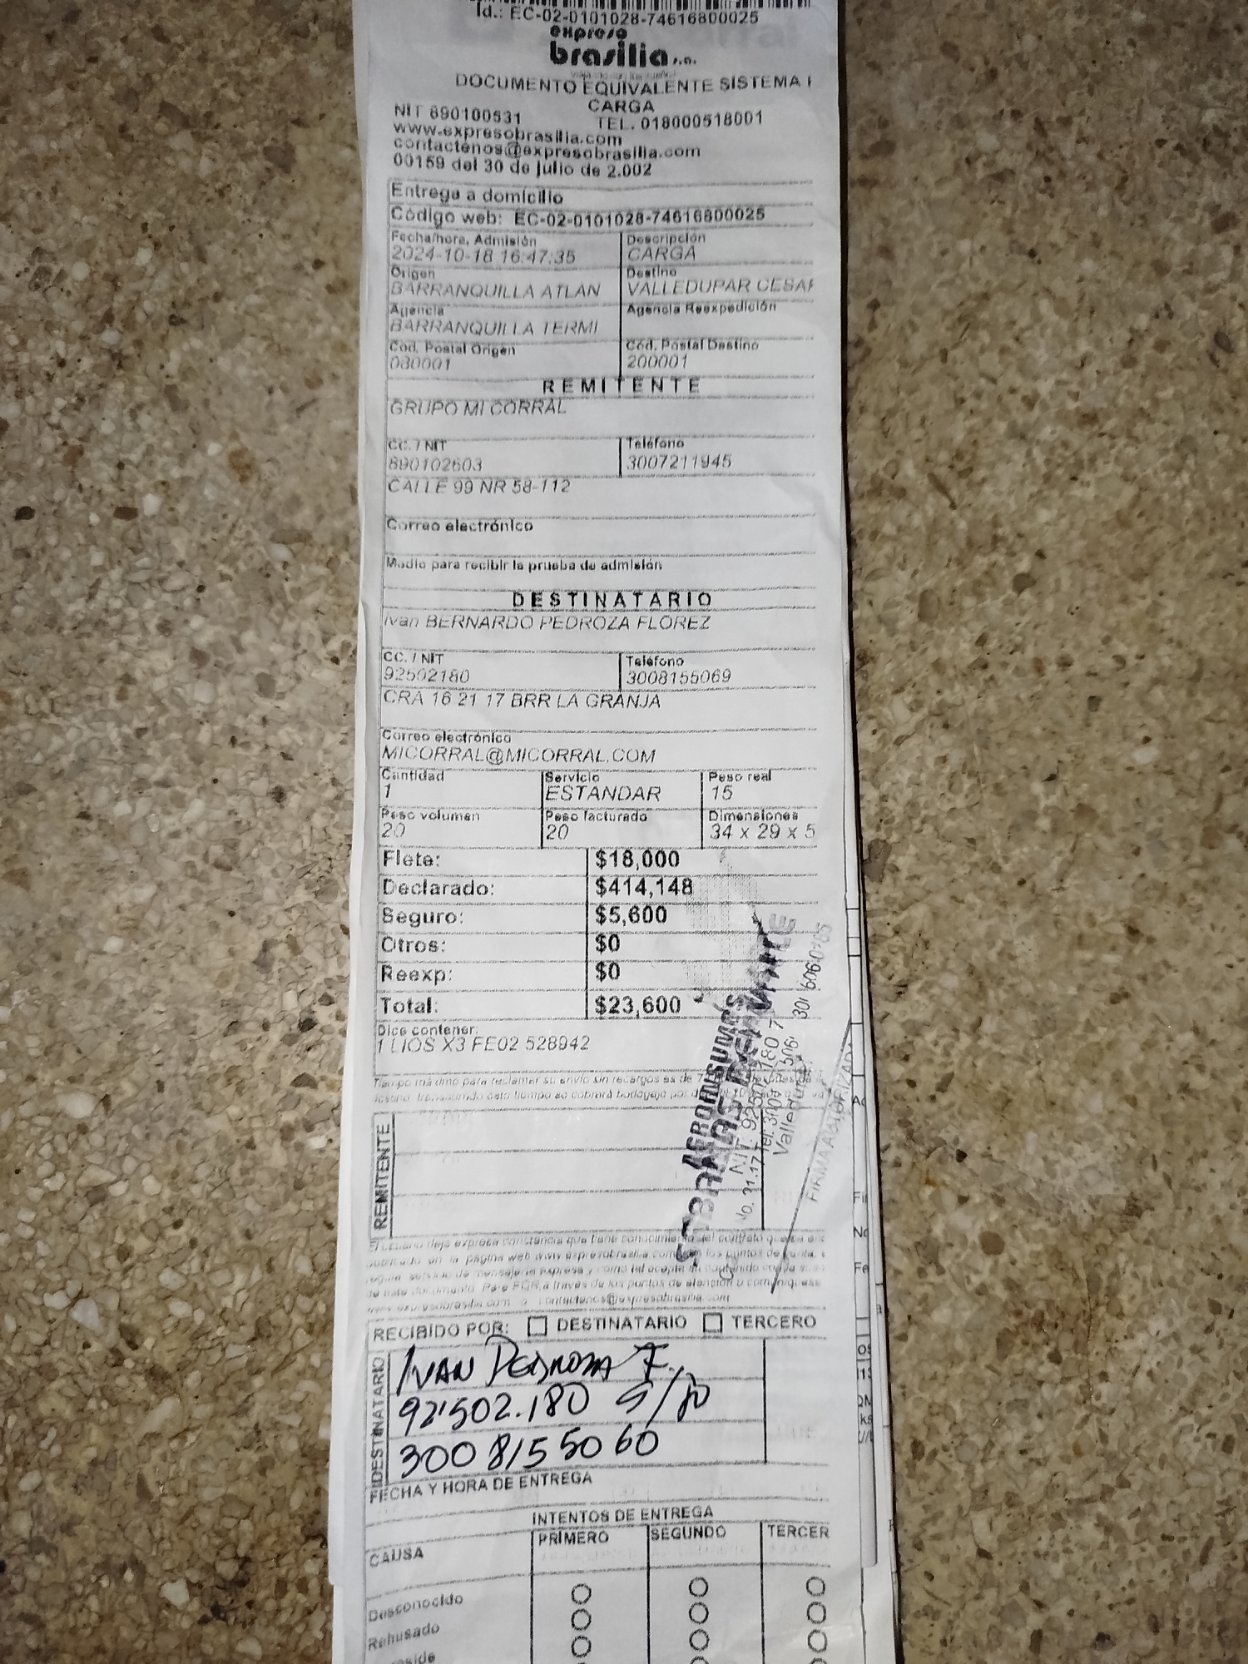 Id.: EC-02-0101028-74616800025
expreso
brasilia s.a.
DOCUMENTO EQUIVALENTE SISTEMA
CARGA
NIT 890100531 TEL. 018000518001
www.expresobrasilia.com
contactenos@expresobrasilia.com
00159 del 30 de julio de 2.002
Entrega a domicilio
Código web: EC-02-0101028-74616800025
Fecha/hora, Admisión Descripción
2024-10-18 16:47:35 CARGA
Origen Destino
BARRANQUILLA ATLAN VALLEDUPAR CESAR
Agencia Agencia Reexpedición
BARRANQUILLA TERMI
Cod. Postal Origen Cod. Postal Destino
080001 200001
REMITENTE
GRUPO MI CORRAL
CC. / NIT Teléfono
890102603 3007211945
CALLE 99 NR 58-112
Correo electrónico
Medio para recibir la prueba de admisión
DESTINATARIO
Ivan BERNARDO PEDROZA FLOREZ
CC. / NIT Teléfono
92502180 3008155069
CRA 16 21 17 BRR LA GRANJA
Correo electrónico
MICORRAL@MICORRAL.COM
Cantidad Servicio Peso real
1 ESTANDAR 15
Peso volumen Peso facturado Dimensiones
20 20 34 x 29 x 5
Flete: $18,000
Declarado: $414,148
Seguro: $5,600
Otros: $0
Reexp: $0
Total: $23,600
Dice contener:
1 LIOS X3 FE02 528942
Tiempo máximo para reclamar su envío sin recargos es de
destino, transcurrido este tiempo se cobrará bodegaje por
AGROINSUMOS
Valledupar
FIRMA AUTORIZADA
REMITENTE
El usuario deja expresa constancia que tiene conocimiento del contrato que
publicado en la página web www.expresobrasilia.com los puntos de venta,
de este documento. Para PQR a través de los puntos de atención o comuníquese
www.expresobrasilia.com o contactenos@expresobrasilia.com
RECIBIDO POR: DESTINATARIO TERCERO
DESTINATARIO
IVAN PEDROZA F.
92'502.180 S/jo
300 8155060
FECHA Y HORA DE ENTREGA
INTENTOS DE ENTREGA
CAUSA PRIMERO SEGUNDO TERCER
Desconocido
Rehusado